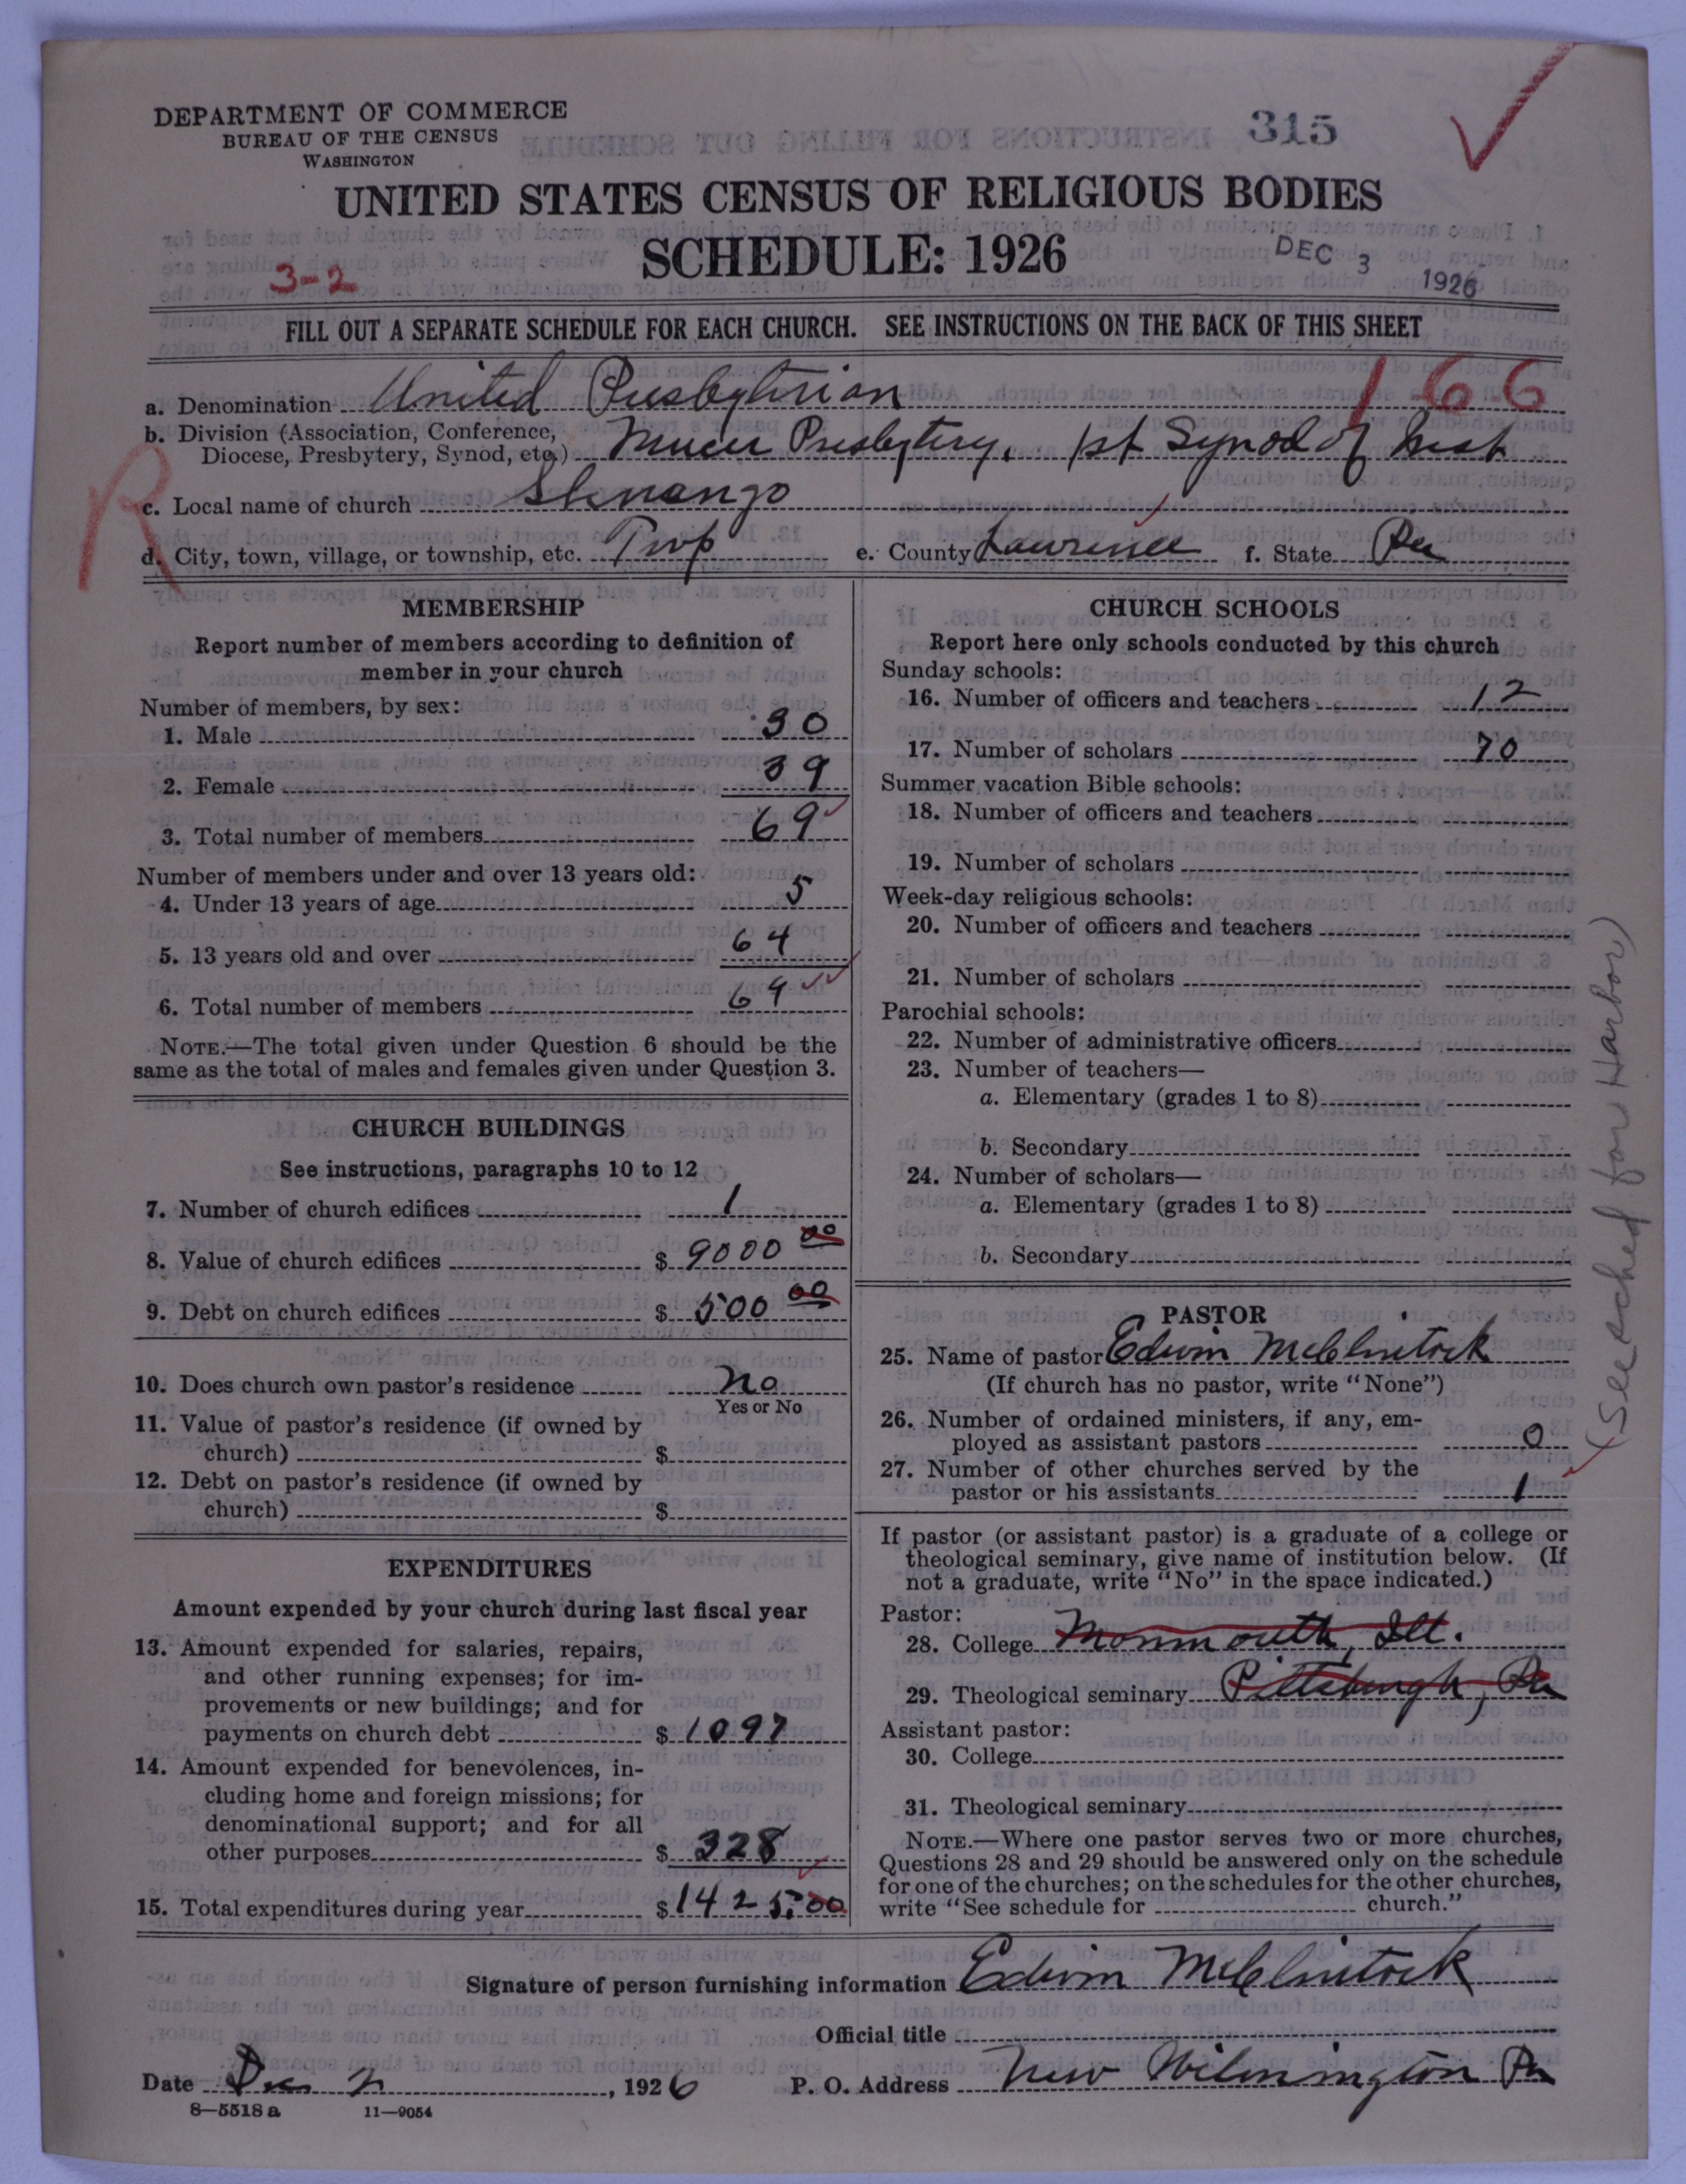 DEPARTMENT OF COMMERCE
BUREAU OF THE CENSUS
WASHINGTON
315
UNITED STATES CENSUS OF RELIGIOUS BODIES
SCHEDULE: 1926
DEC 3 1926
3-2
FILL OUT A SEPARATE SCHEDULE FOR EACH CHURCH. SEE INSTRUCTIONS ON THE BACK OF THIS SHEET
166
a. Denomination United Presbyterian
b. Division (Association, Conference, Diocese, Presbytery, Synod, etc.) Mercer Presbytery, 1st Synod of West
R
c. Local name of church Shenango
d. City, town, village, or township, etc. Twp e. County Lawrence f. State Pa
MEMBERSHIP
Report number of members according to definition of
member in your church
Number of members, by sex:
1. Male 30
2. Female 39
3. Total number of members 69
Number of members under and over 13 years old:
4. Under 13 years of age 5
5. 13 years old and over 64
6. Total number of members 69
NOTE.—The total given under Question 6 should be the
same as the total of males and females given under Question 3.
CHURCH BUILDINGS
See instructions, paragraphs 10 to 12
7. Number of church edifices 1
8. Value of church edifices $ 9000 00
9. Debt on church edifices $ 500 00
10. Does church own pastor's residence No
Yes or No
11. Value of pastor's residence (if owned by
church) $
12. Debt on pastor's residence (if owned by
church) $
EXPENDITURES
Amount expended by your church during last fiscal year
13. Amount expended for salaries, repairs,
and other running expenses; for im-
provements or new buildings; and for
payments on church debt $ 1097
14. Amount expended for benevolences, in-
cluding home and foreign missions; for
denominational support; and for all
other purposes $ 328
15. Total expenditures during year $ 1425.00
CHURCH SCHOOLS
Report here only schools conducted by this church
Sunday schools:
16. Number of officers and teachers 12
17. Number of scholars 70
Summer vacation Bible schools:
18. Number of officers and teachers
19. Number of scholars
Week-day religious schools:
20. Number of officers and teachers
21. Number of scholars
Parochial schools:
22. Number of administrative officers
23. Number of teachers—
a. Elementary (grades 1 to 8)
b. Secondary
24. Number of scholars—
a. Elementary (grades 1 to 8)
b. Secondary
PASTOR
25. Name of pastor Edwin McClintock
(If church has no pastor, write "None")
26. Number of ordained ministers, if any, em-
ployed as assistant pastors 0
27. Number of other churches served by the
pastor or his assistants 1
If pastor (or assistant pastor) is a graduate of a college or
theological seminary, give name of institution below. (If
not a graduate, write "No" in the space indicated.)
Pastor:
28. College Monmouth, Ill.
29. Theological seminary Pittsburgh, Pa
Assistant pastor:
30. College
31. Theological seminary
NOTE.—Where one pastor serves two or more churches,
Questions 28 and 29 should be answered only on the schedule
for one of the churches; on the schedules for the other churches,
write "See schedule for church."
(See sched for Harbor)
Signature of person furnishing information Edwin McClintock
Official title
Date Dec 2, 1926 P. O. Address New Wilmington Pa
8—5518 a 11—9054